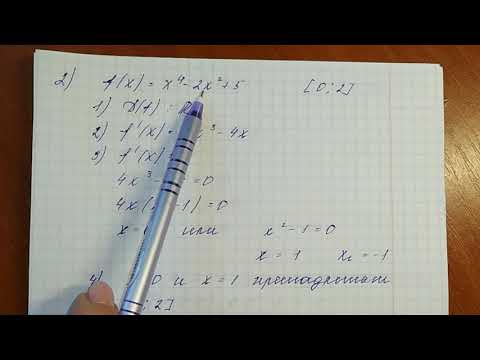 2) f(x) = x⁴ - 2x² + 5 [0; 2]
1) D(f) : R
2) f'(x) = x³ - 4x
3) f'(x)
4x³ - = 0
4x( - 1) = 0
x = или x² - 1 = 0
x = 1 x₂ = -1
4) 0 и x = 1 принадлежат
; 2]